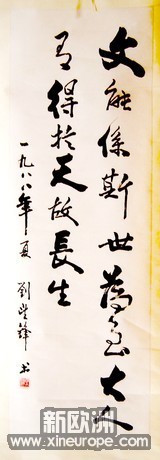 文能係斯世為大
得於天故長生
一九八八年夏 劉鋒书
新欧洲
www.xineurope.com